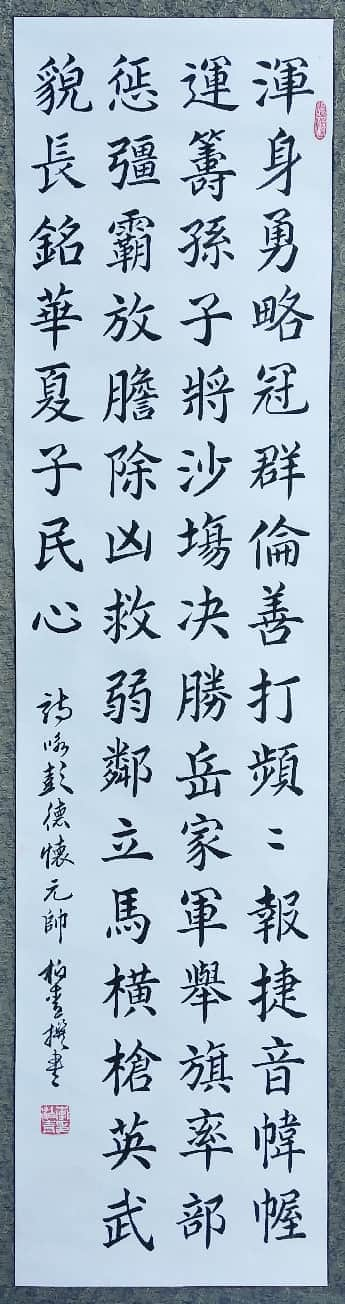 渾身勇略冠群倫善打頻〻報捷音幃幄
運籌孫子將沙塲决勝岳家軍舉旗率部
懲彊霸放膽除凶救弱鄰立馬橫槍英武
貌長銘華夏子民心
詩咏彭德懷元帥 柏青撰書